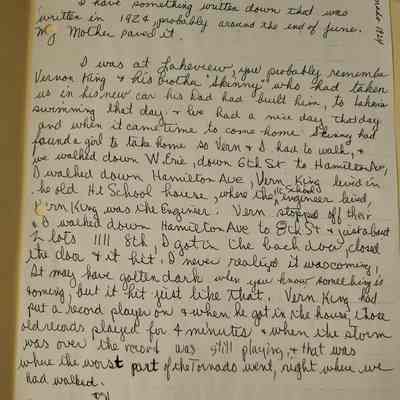 I have something written down that was
written in 1924, probably around the end of June.
My Mother saved it.
I was at Lakeview, you probably remember
Vernon King & his brother "Skinny" who had taken
us in his new car his Dad had built him, to Lakeview
swimming that day & we had a nice day that day
and when it came time to come home Skinny had
found a girl to take home so Vern & I had to walk, &
we walked down W. Erie, down 6th St to Hamilton Ave,
I walked down Hamilton Ave, Vern King lived in
the old Hi School house, where the Hi School engineer lived,
Vern King was the Engineer. Vern stopped off their
& I walked down Hamilton Ave to 8th St & just about
lots 1111 8th, I got in the back door, closed
the door & it hit. I never realize it was coming,
It may have gotten dark when you know something is
coming, but it hit just like that. Vern King had
put a record player on & when he got in the house, those
old records played for 4 minutes & when the storm
was over the record was still playing, & that was
where the worst part of the Tornado went, right where we
had walked.